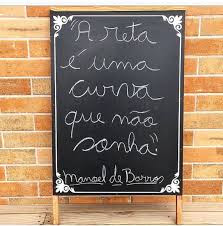 "A reta
é uma
curva
que não
sonha"
Manoel de Barros